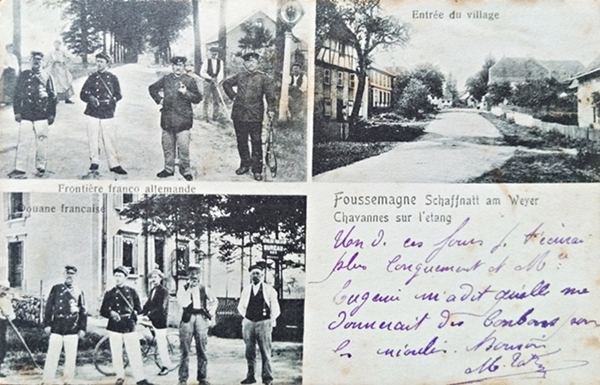 Entrée du village
Frontière franco allemande
Douane française
BUREAU
Foussemagne Schaffnatt am Weyer
Chavannes sur l'etang
Un de ces jours j'écrirai
plus longuement et Mlle
Eugenie m'a dit qu'elle me
donnerait des bonbons pour
les
Bonsoir
M.